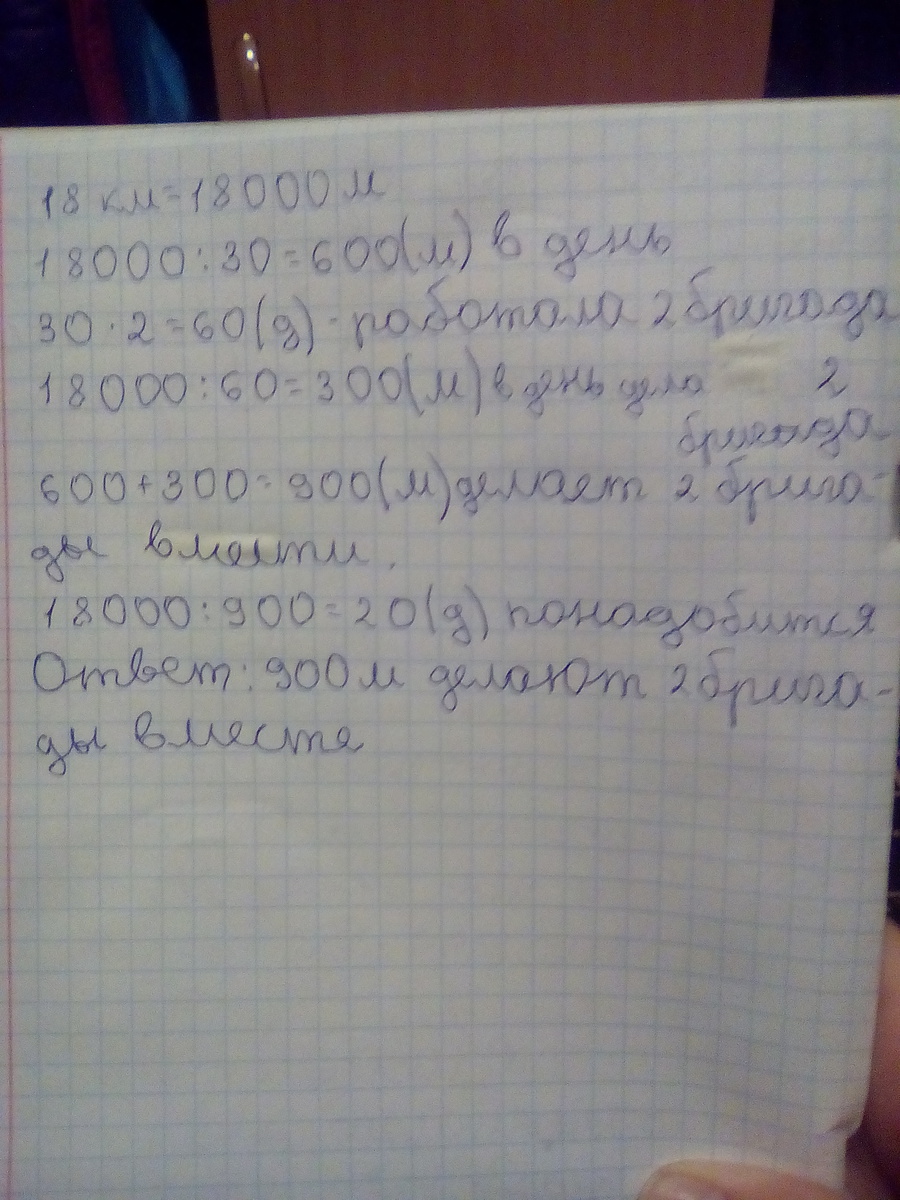 18 км=18000 м
18000:30=600(м) в день
30·2=60(д)-работала 2 бригада
18000:60=300(м) в день дела 2
бригада
600+300=900(м) делает 2 брига-
ды вмести.
18000:900=20(д) понадобится
Ответ: 900 м делают 2 брига-
ды вместе